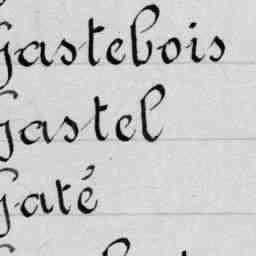 Gastebois
Gastel
Gaté